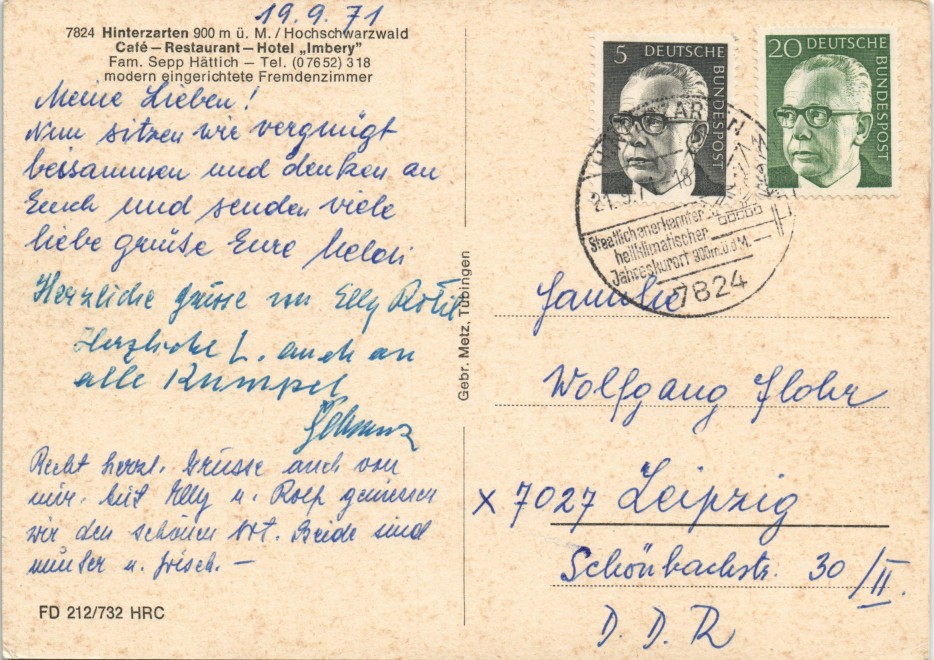 19.9.71
7824 Hinterzarten 900 m ü. M. / Hochschwarzwald
Café – Restaurant – Hotel „Imbery”
Fam. Sepp Hättich – Tel. (07652) 318
modern eingerichtete Fremdenzimmer
Meine Lieben!
Nun sitzen wir vergnügt
beisammen und denken an
Euch und senden viele
liebe grüße Eure
Herzliche grüsse von Elly
Herzliche L. auch an
alle Kumpel
Recht herzl. Grüsse auch von
mir. Mit Elly u. Rolf geniessen
wir den schönen Ort. Beide sind
munter u. frisch. –
FD 212/732 HRC
Gebr. Metz, Tübingen
5 DEUTSCHE
BUNDESPOST
20 DEUTSCHE
BUNDESPOST
21.9.7 -18
Staatlich anerkannter
heilklimatischer
Jahreskurort 900m.ü.d.M.
7824
Familie
Wolfgang Flohr
x 7027 Leipzig
Schönbachstr. 30/II.
D. D. R